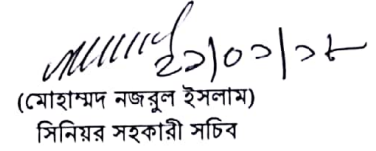 ২১/০১/১৮
(মোহাম্মদ নজরুল ইসলাম)
সিনিয়র সহকারী সচিব